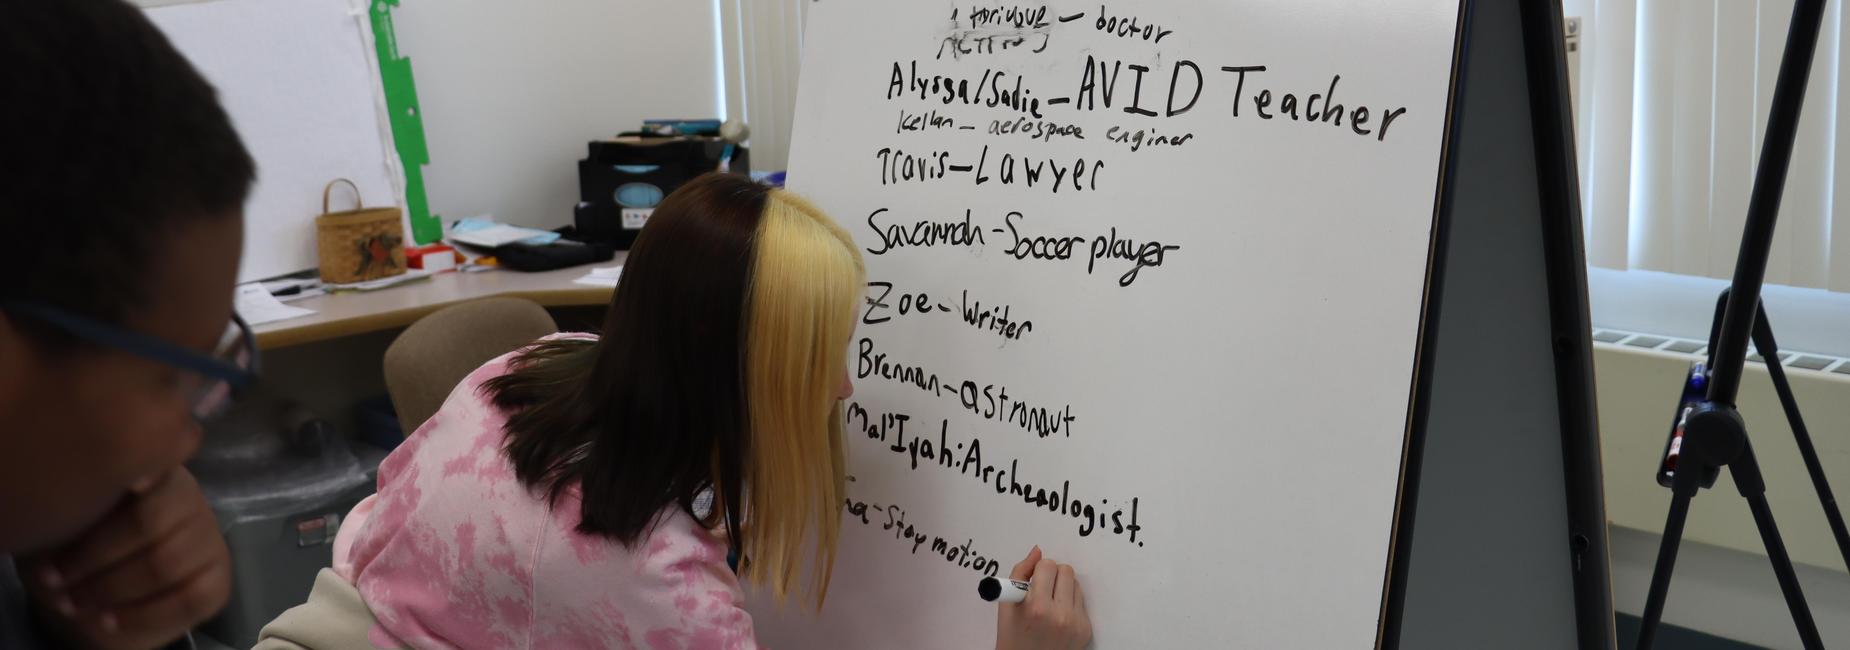 — doctor
Alyssa/Sadie - AVID Teacher
Kellan - aerospace enginer
Travis - Lawyer
Savannah - Soccer player
Zoe - Writer
Brennan - astronaut
Mal'Iyah: Archeaologist.
- Stop motion